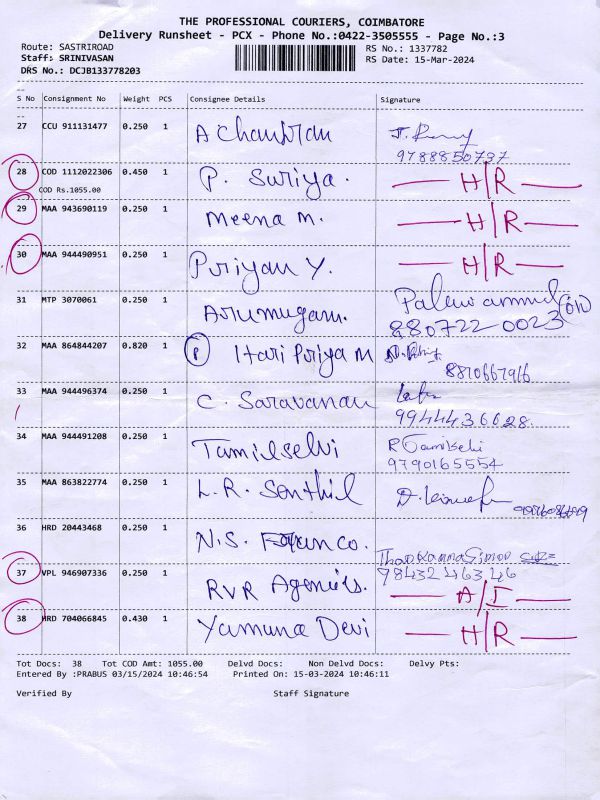 THE PROFESSIONAL COURIERS, COIMBATORE
Delivery Runsheet - PCX - Phone No.:0422-3505555 - Page No.:3
Route: SASTRIROAD RS No.: 1337782
Staff: SRINIVASAN RS Date: 15-Mar-2024
DRS No.: DCJB133778203
S No Consignment No Weight PCS Consignee Details Signature
27 CCU 911131477 0.250 1 A Chandran
9788850797
28 COD 1112022306 0.450 1 P. Suriya. H/R
COD Rs.1055.00
29 MAA 943690119 0.250 1 Meena M. H/R
30 MAA 944490951 0.250 1 Priyan Y. H/R
31 MTP 3070061 0.250 1 Arumugam.
880722 0023
32 MAA 864844207 0.820 1 P Hari Priya M
8870667916
33 MAA 944496374 0.250 1 C. Saravanan
9944436628.
34 MAA 944491208 0.250 1 Tamilselvi R Tamilselvi
9790165554
35 MAA 863822774 0.250 1 L.R. Senthil
36 HRD 20443468 0.250 1 N.S. &Co.
78432 46346
37 VPL 946907336 0.250 1 RVR Agencies. A/I
38 HRD 704066845 0.430 1 Yamuna Devi H/R
Tot Docs: 38 Tot COD Amt: 1055.00 Delvd Docs: Non Delvd Docs: Delvy Pts:
Entered By :PRABUS 03/15/2024 10:46:54 Printed On: 15-03-2024 10:46:11
Verified By Staff Signature